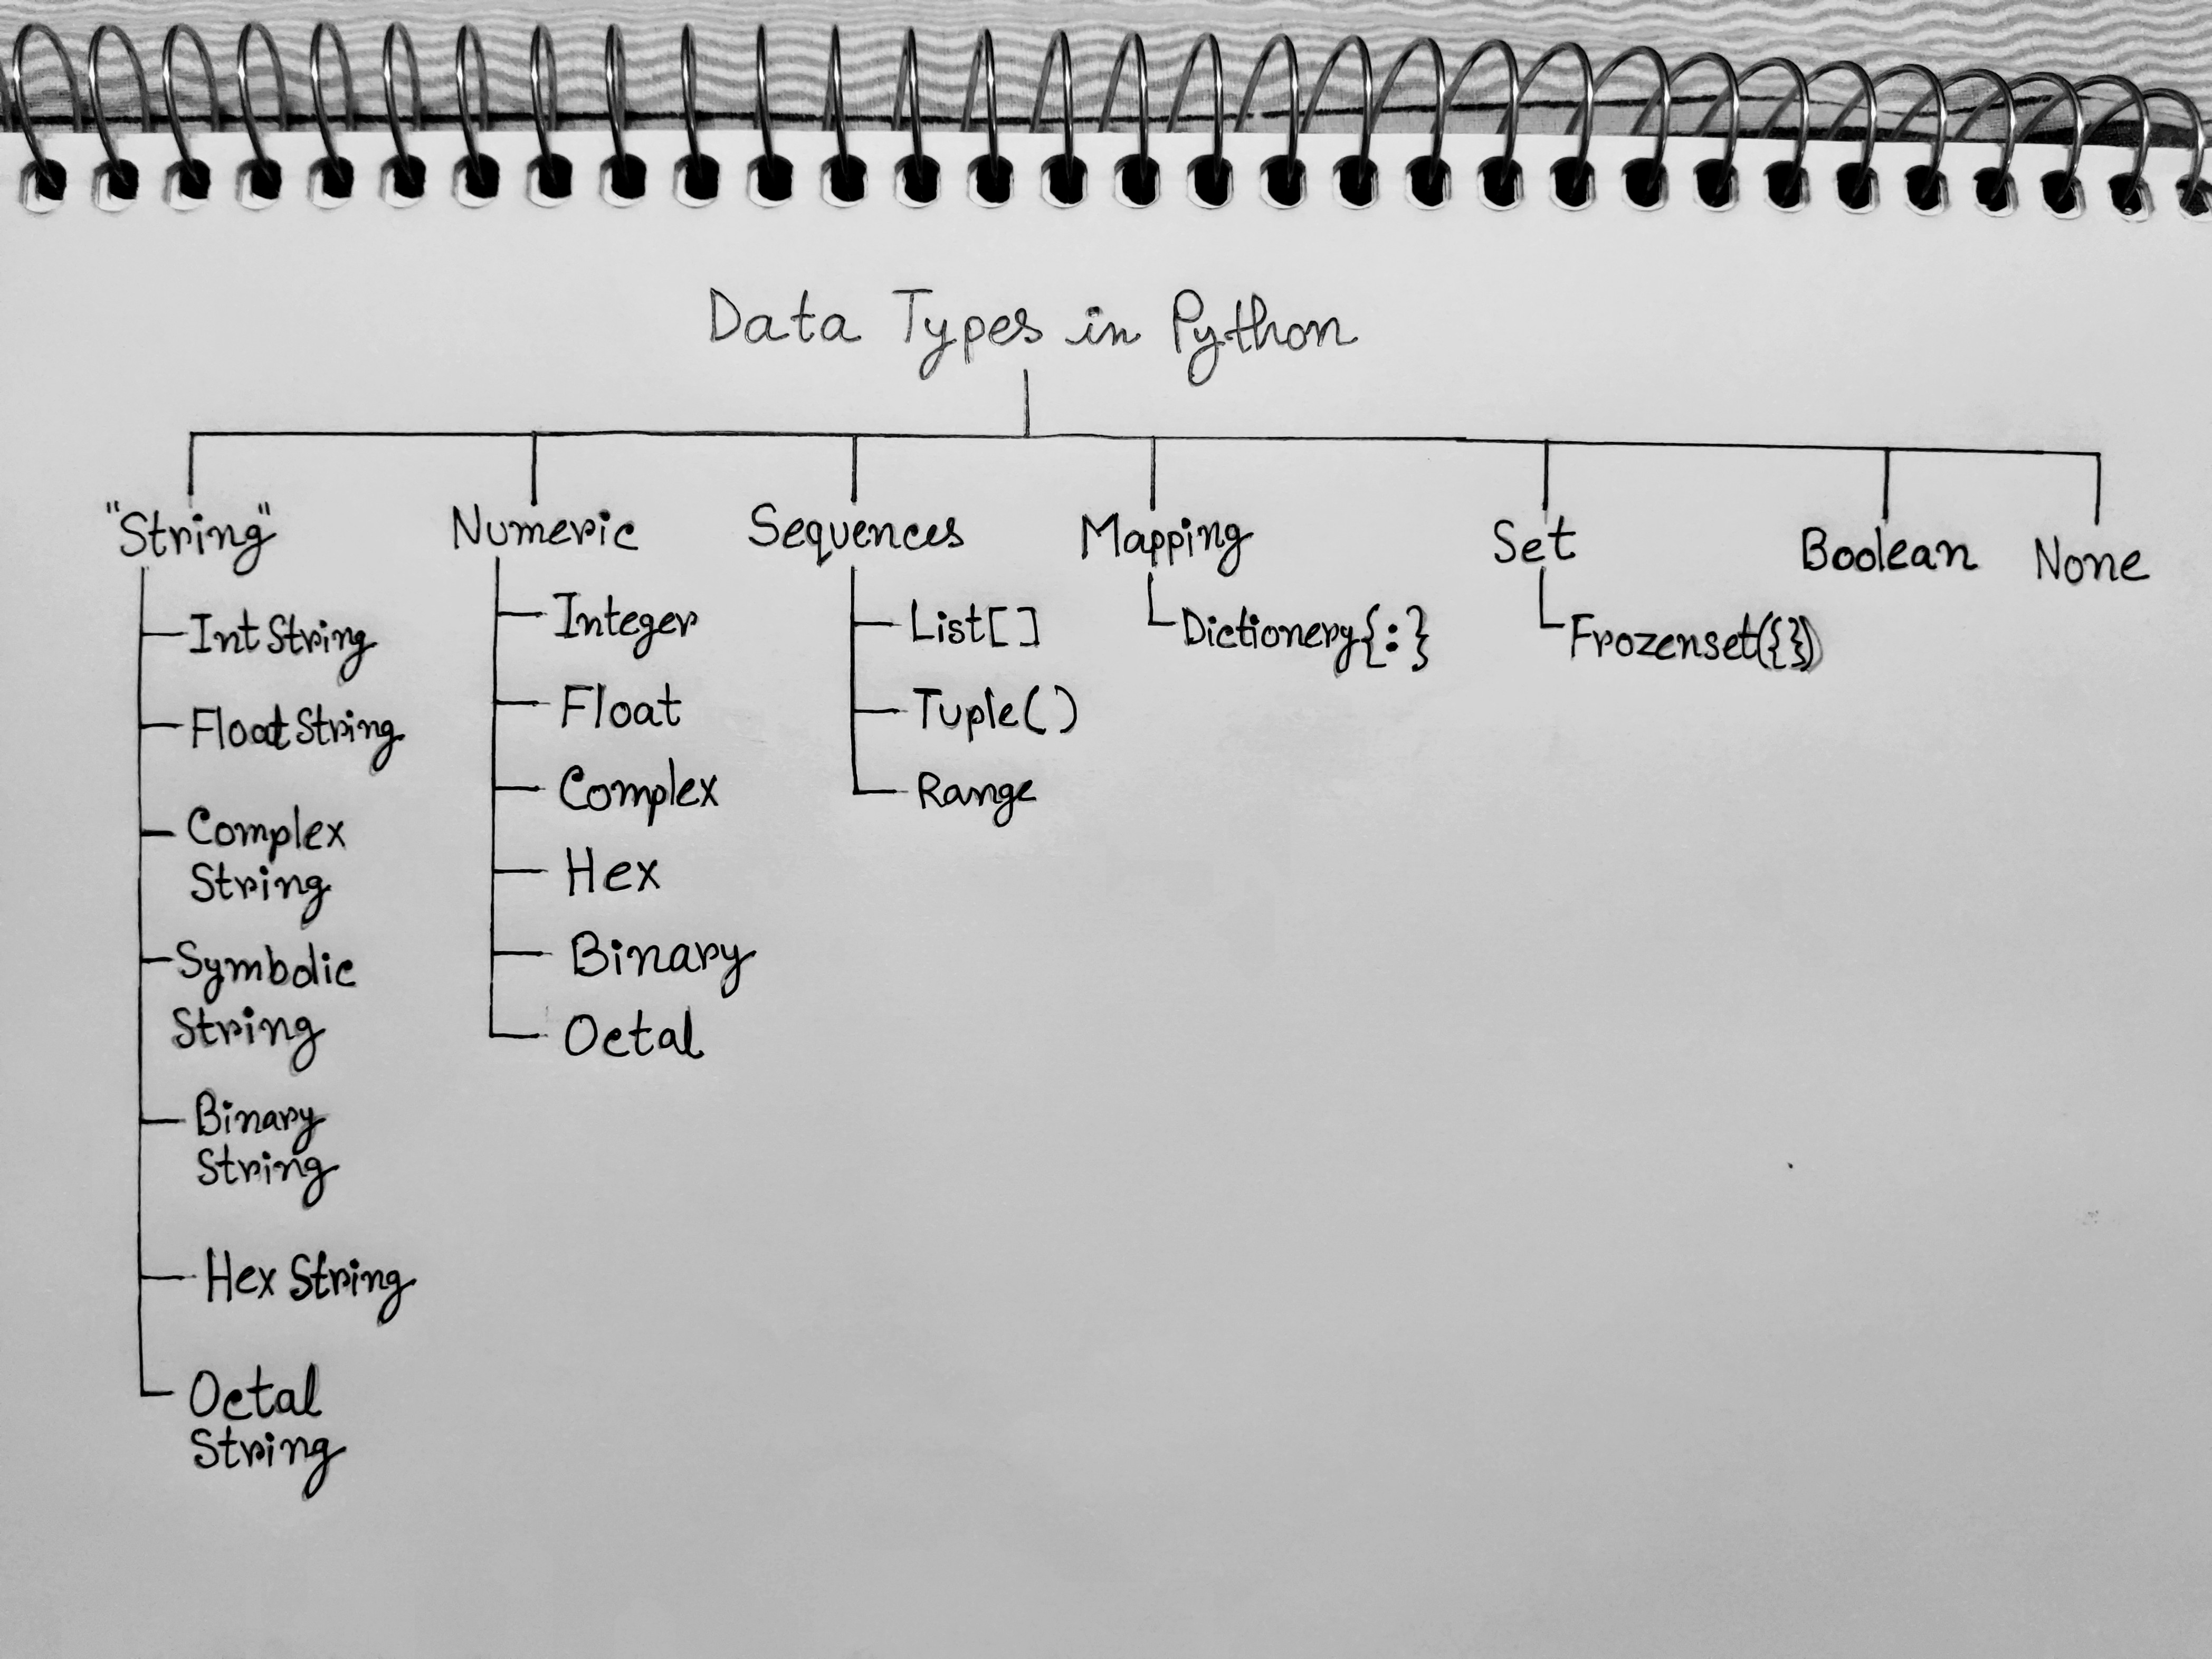 Data Types in Python
"String"
Int String
Float String
Complex
String
Symbolic
String
Binary
String
Hex String
Octal
String
Numeric
Integer
Float
Complex
Hex
Binary
Octal
Sequences
List[]
Tuple()
Range
Mapping
Dictionery{:}
Set
Frozenset({})
Boolean
None